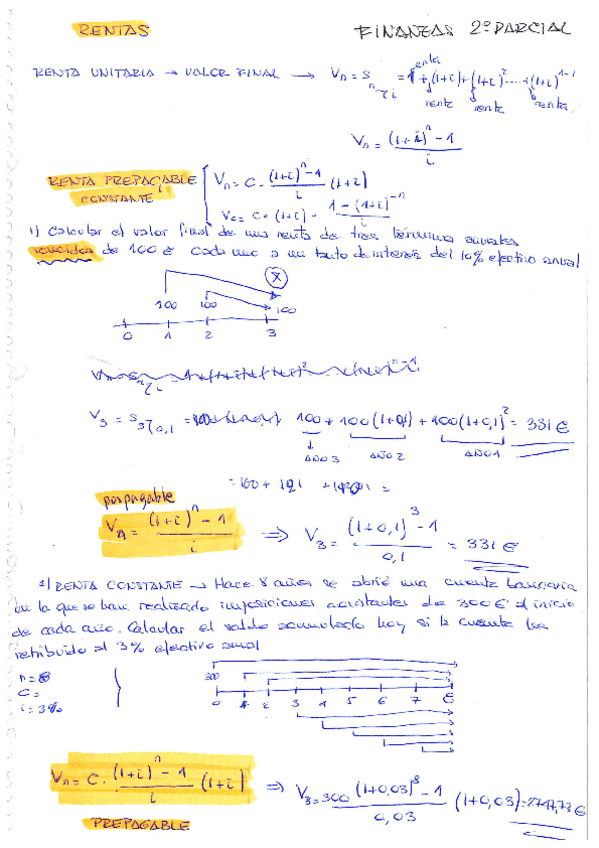 RENTAS
FINANZAS 2º PARCIAL
RENTA UNITARIA → VALOR FINAL → Vn = S n⌉i = 1 + (1+i) + (1+i)² ..... + (1+i)ⁿ⁻¹
renta
renta renta renta
Vn = ((1+i)ⁿ - 1) / i
RENTA PREPAGABLE
CONSTANTE
Vn = C · ((1+i)ⁿ - 1) / i (1+i)
V0 = C · (1+i) · (1 - (1+i)⁻ⁿ) / i
1) Calcular el valor final de una renta de tres términos anuales
vencidos de 100 € cada uno a un tanto de interés del 10% efectivo anual
X
100 100 100
0 1 2 3
V3 = S 3⌉0,1 = 100 + 100(1+0,1) + 100(1+0,1)² = 331 €
AÑO 3 AÑO 2 AÑO 1
= 100 + 121 +
pospagable
Vn = ((1+i)ⁿ - 1) / i ⇒ V3 = ((1+0,1)³ - 1) / 0,1 = 331 €
2) RENTA CONSTANTE → Hace 8 años se abrió una cuenta bancaria
en la que se han realizado imposiciones constantes de 300 € al inicio
de cada año. Calcular el saldo acumulado hoy si la cuenta ha
retribuido al 3% efectivo anual
n = 8
C =
i = 3%
300
0 1 2 3 4 5 6 7 8
Vn = C · ((1+i)ⁿ - 1) / i (1+i) ⇒ V8 = 300 ((1+0,03)⁸ - 1) / 0,03 (1+0,03) = 2747,73 €
PREPAGABLE